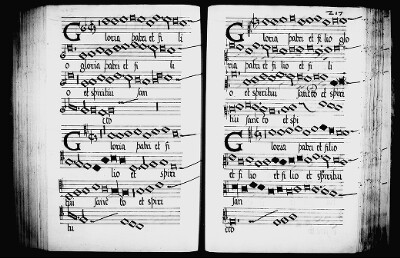 Gloria patri et fi li
o gloria patri et fi li
o et spiritui san
cto
Gloria patri et fi
lio et spiri
tui sanc to et spiri
tu
217
Gloria patri et fi lio glo
ria patri et fi lio et fi li
o et spiritui sancto et spiri
tui sanc to et spi
Gloria patri et filio
et fi lio et fi lio et spiritui
san
cto